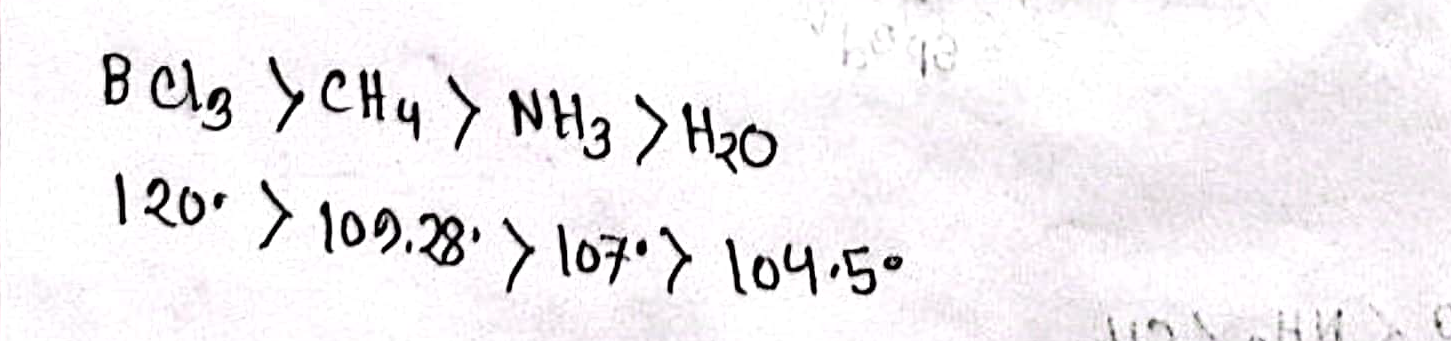 BCl3 > CH4 > NH3 > H2O
120° > 109.28° > 107° > 104.5°